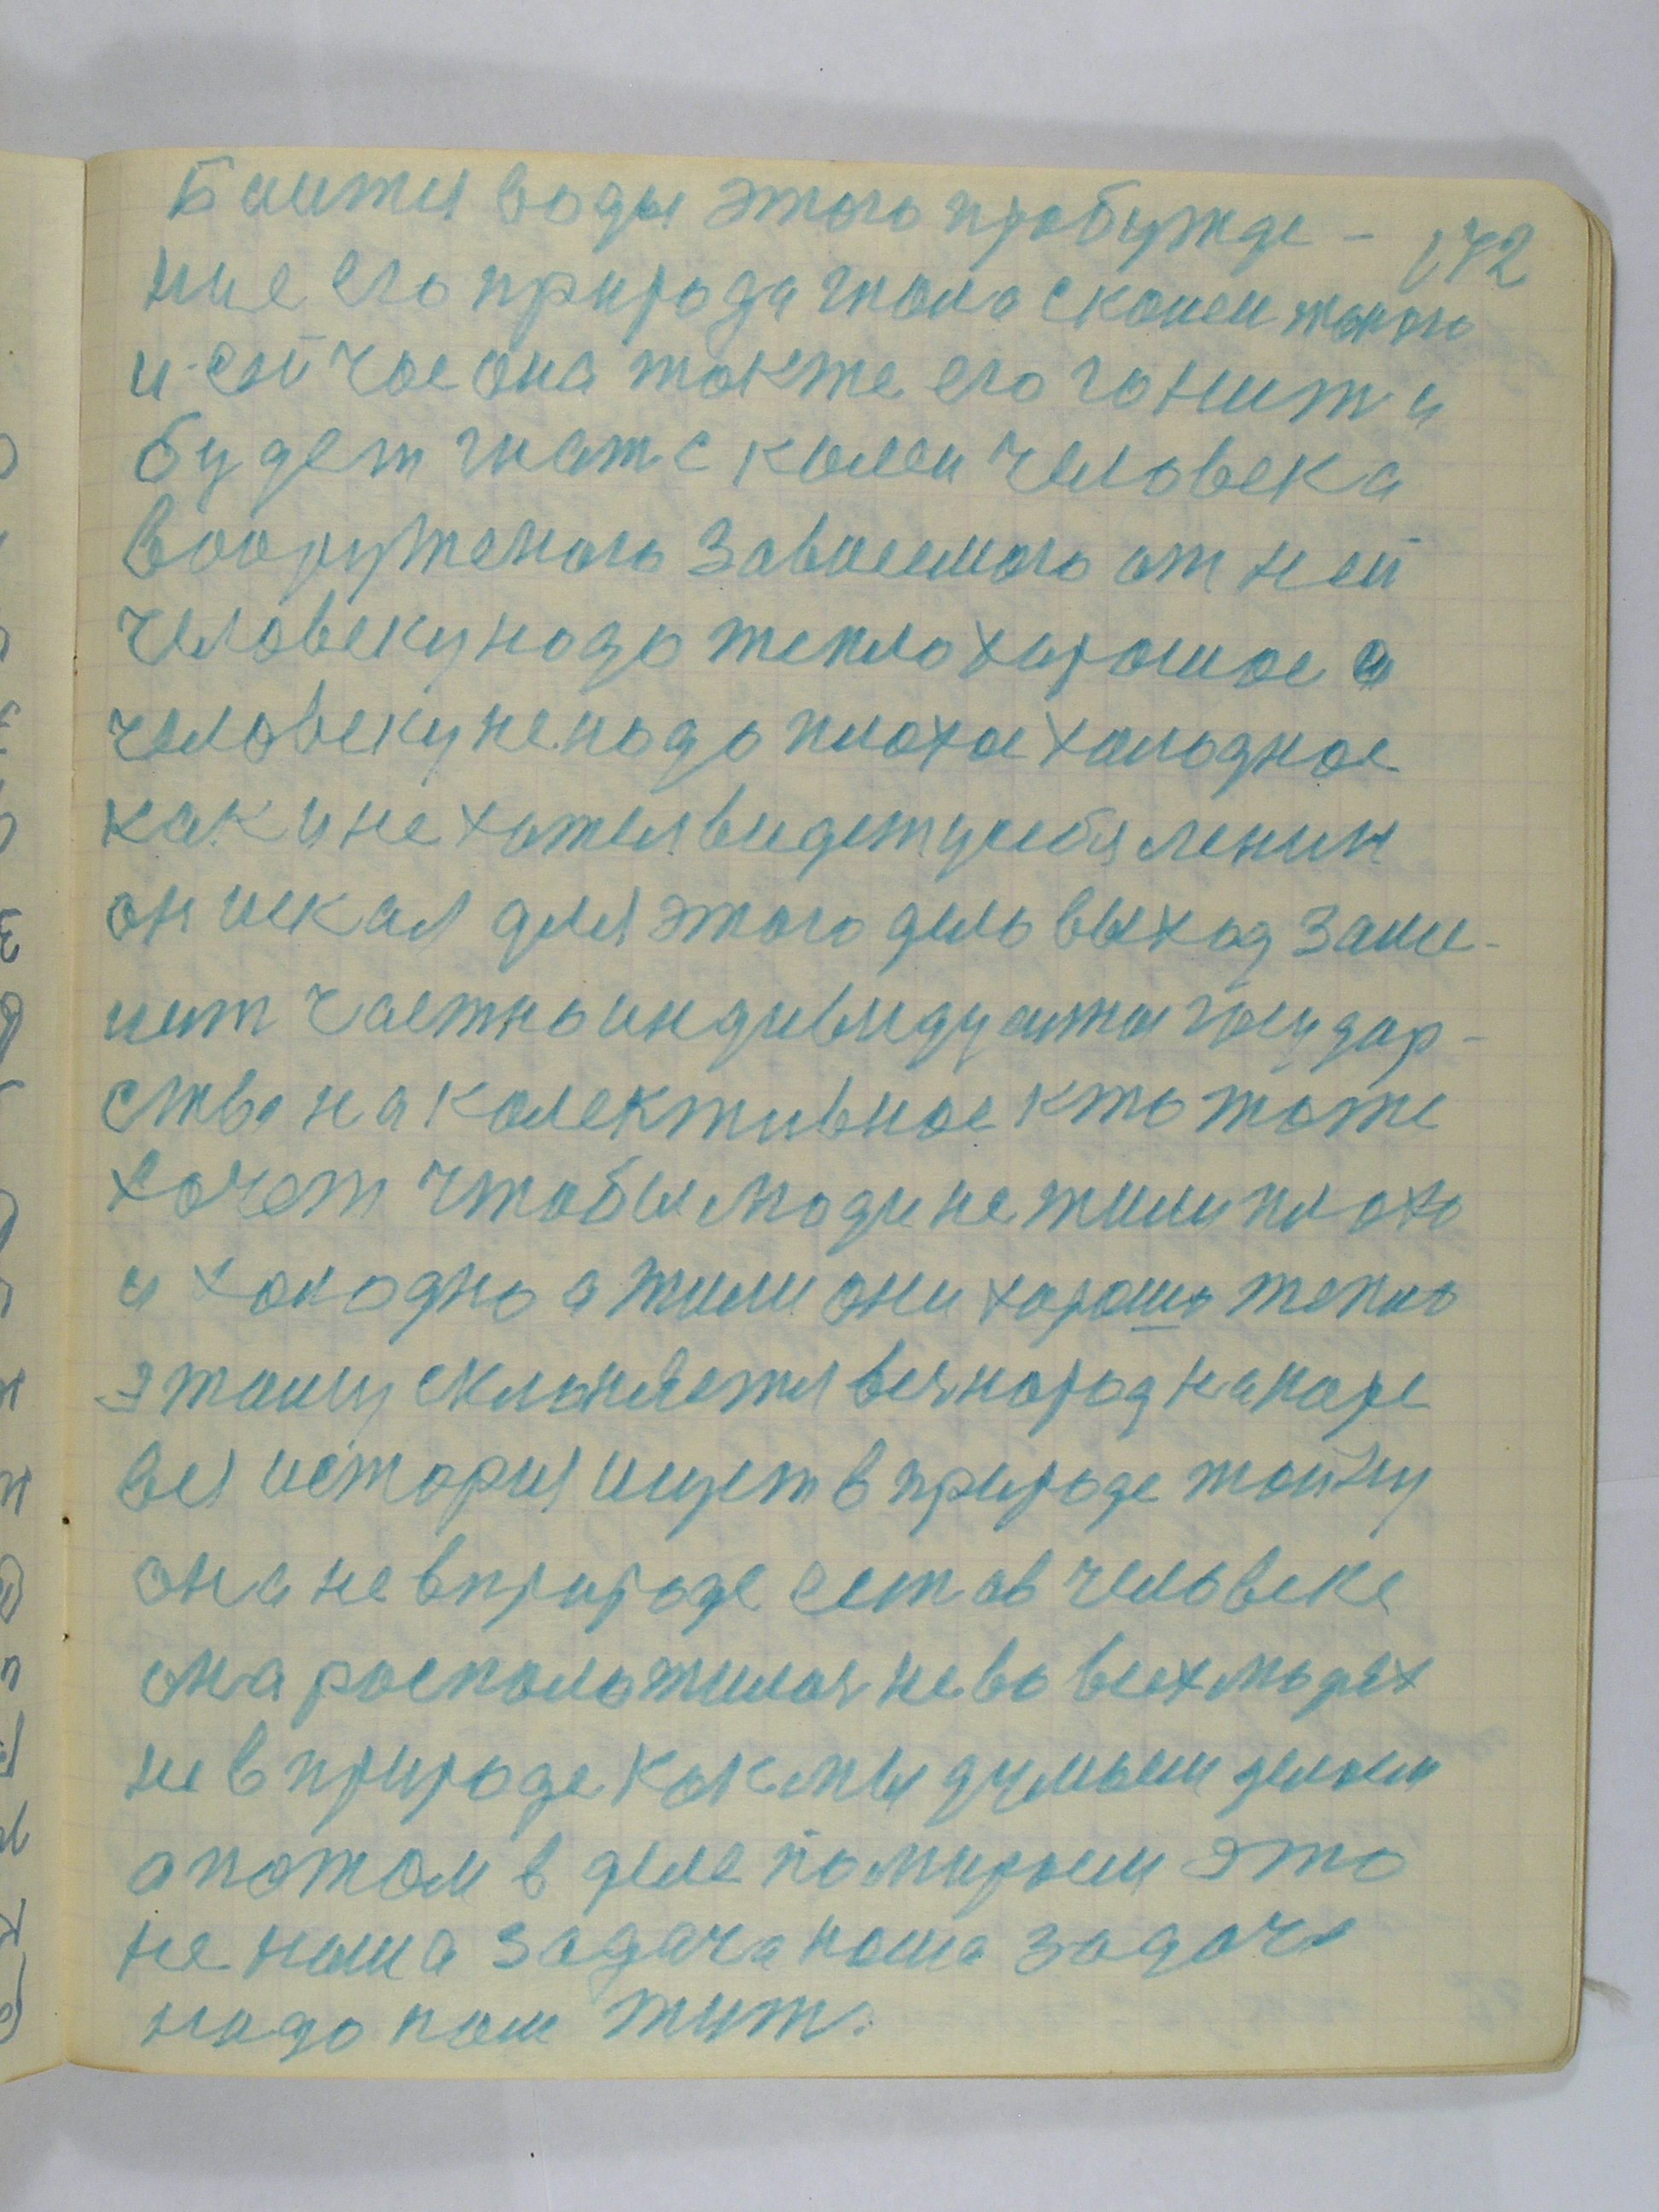 Баится воды этого пробужде-
172
ние его природа гнала с колеи такого
и сейчас она также его гонит и
будет гнат с колеи человека
вооруженого зависемого от ней
человеку надо тепло харошое а
человеку ненадо плохое холодное
как и не хотел видет у себя ленин
он искал для этого дело выход заме-
нит частно индивидуально государ-
ство на колективное кто тоже
хочет чтобы люди не жили плохо
и холодно а жили они хорошо тепло
этому склоняется вся народ на наре
вся история ищет в природе тайну
она не в природе есть а в человеке
она росположилася не во всех людях
не в природе как мы думыем делаем
а потом в деле помираем это
не наша задача наша задача
надо нам жит.